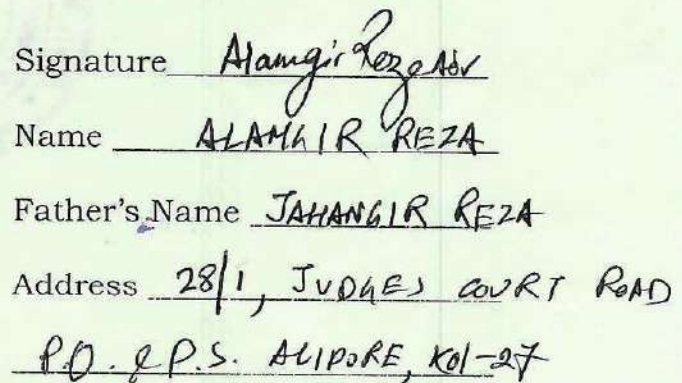 Signature Alamgir Reza Adv
Name ALAMGIR REZA
Father's Name JAHANGIR REZA
Address 28/1, JUDGES COURT ROAD
P.O. & P.S. ALIPORE, Kol-27